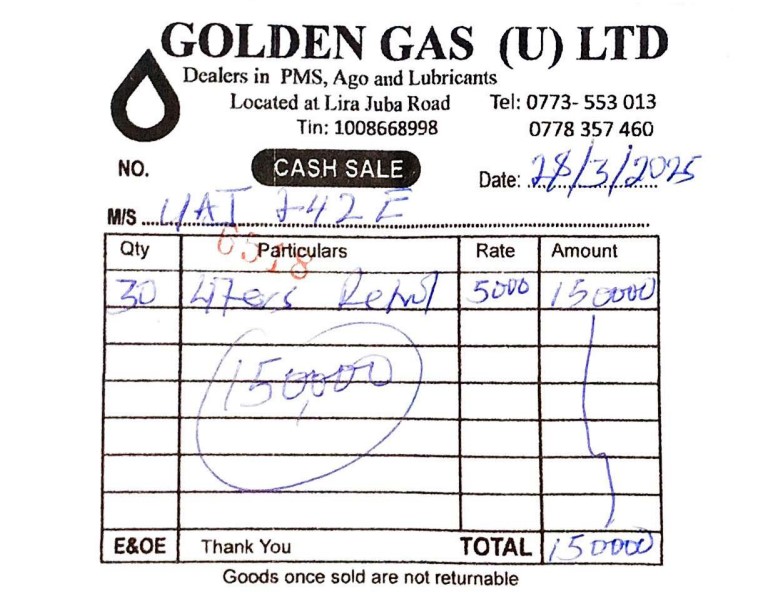 GOLDEN GAS (U) LTD
Dealers in PMS, Ago and Lubricants
Located at Lira Juba Road Tel: 0773- 553 013
Tin: 1008668998 0778 357 460
NO. CASH SALE Date: 28/3/2025
M/S UAT 742E
6518
Qty Particulars Rate Amount
30 Liters Petrol 5000 150000
150,000
E&OE Thank You TOTAL 150000
Goods once sold are not returnable